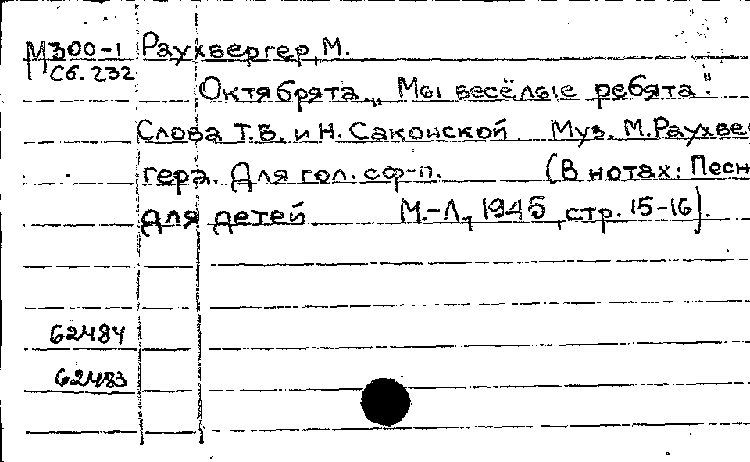 М300-1 Раухвергер, М.
Сб. 232
Октябрята. „Мы весёлые ребята".
Слова Т.В. и Н. Саконской. Муз. М. Раухвер
гера. Для гол. с ф-п. (В нотах: Песн
для детей М.-Л., 1945, стр. 15-16).
62484
62483